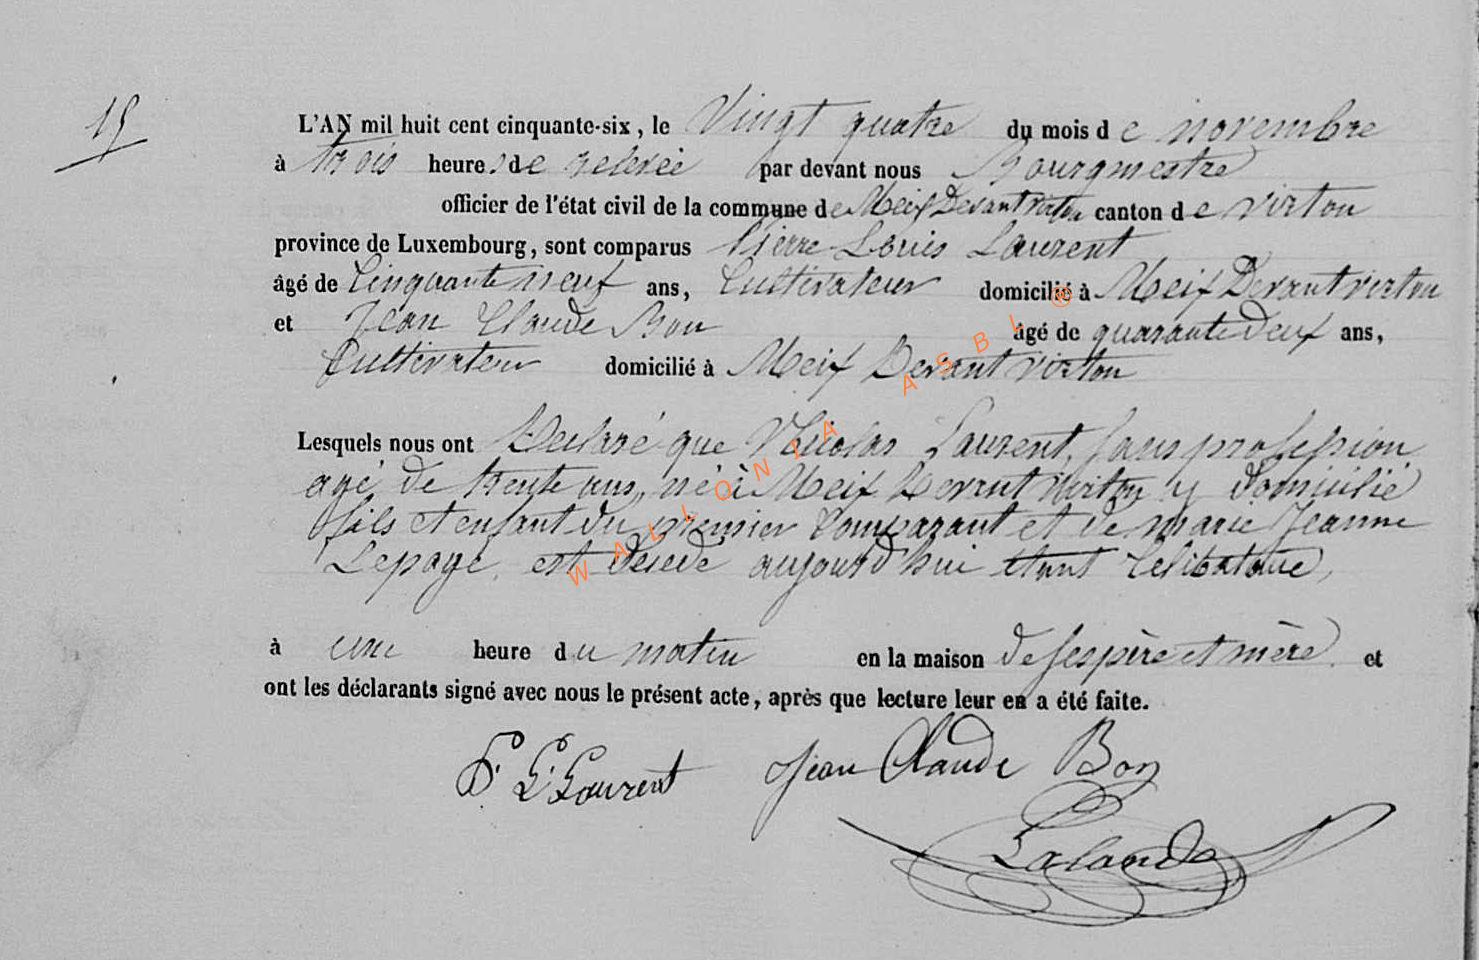 15
L'AN mil huit cent cinquante-six, le Vingt quatre du mois de novembre
à trois heures de relevée par devant nous Bourgmestre
officier de l'état civil de la commune de Meix Devant virton canton de virton
province de Luxembourg, sont comparus Pierre Louis Laurent
âgé de Cinquante neuf ans, Cultivateur domicilié à Meix Devant virton
et Jean Claude Bon âgé de quarante deux ans,
Cultivateur domicilié à Meix Devant virton
Lesquels nous ont Declaré que Nicolas Laurent, sans profession
agé de trente ans, né à Meix Devant virton y domicilié
fils et enfant du premier Comparant et de marie Jeanne
Lepage, est décédé aujourd'hui étant Celibataire,
à une heure du matin en la maison de ses père et mère et
ont les déclarants signé avec nous le présent acte, après que lecture leur en a été faite.
P. L. Laurent Jean Claude Bon
Lalande
WALLONIA ASBL ®